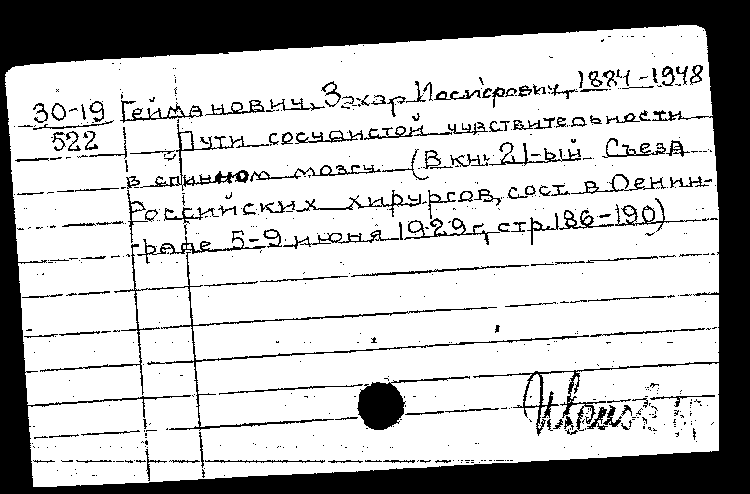 30-19 Гейманович, Захар Иосифович, 1884-1948
522 Пути сосудистой чувствительности
в спинном мозгу. (В кн: 21-ый Съезд
Российских хирургов, сост. в Ленин-
граде 5-9 июня 1929 г, стр. 186-190)